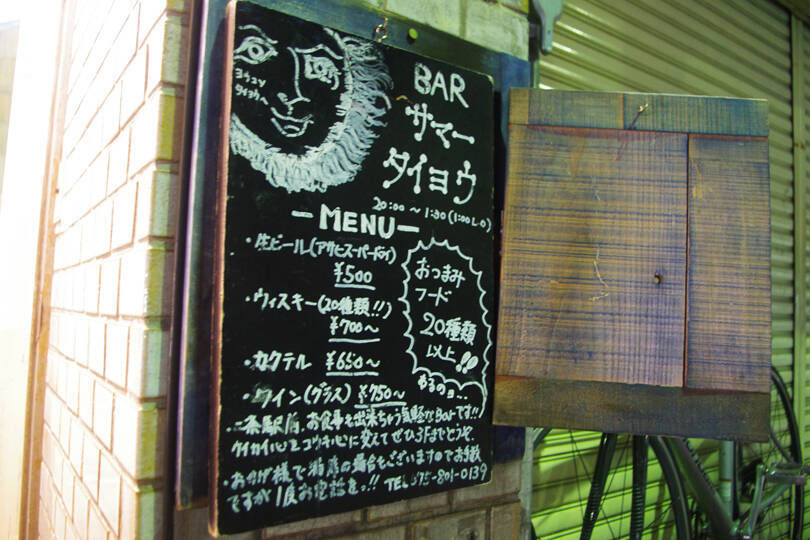 BAR
サマー
タイヨウ
20:00～1:30(1:00L.O)
ヨウコソ
タイヨウへ
-MENU-
・生ビール(アサヒスーパードライ)
¥500
・ウィスキー(20種類!!)
¥700～
・カクテル ¥650～
・ワイン(グラス) ¥750～
おつまみ
フード
20種類
以上!!
あるのョ…
二条駅前、お食事も出来ちゃう気軽なBarです!!
ケイカイ心をコウキ心に変えてぜひ3Fまでどうぞ。
・おかげ様で満席の場合もございますのでお手数
ですが1度お電話を!! TEL 075-801-0139